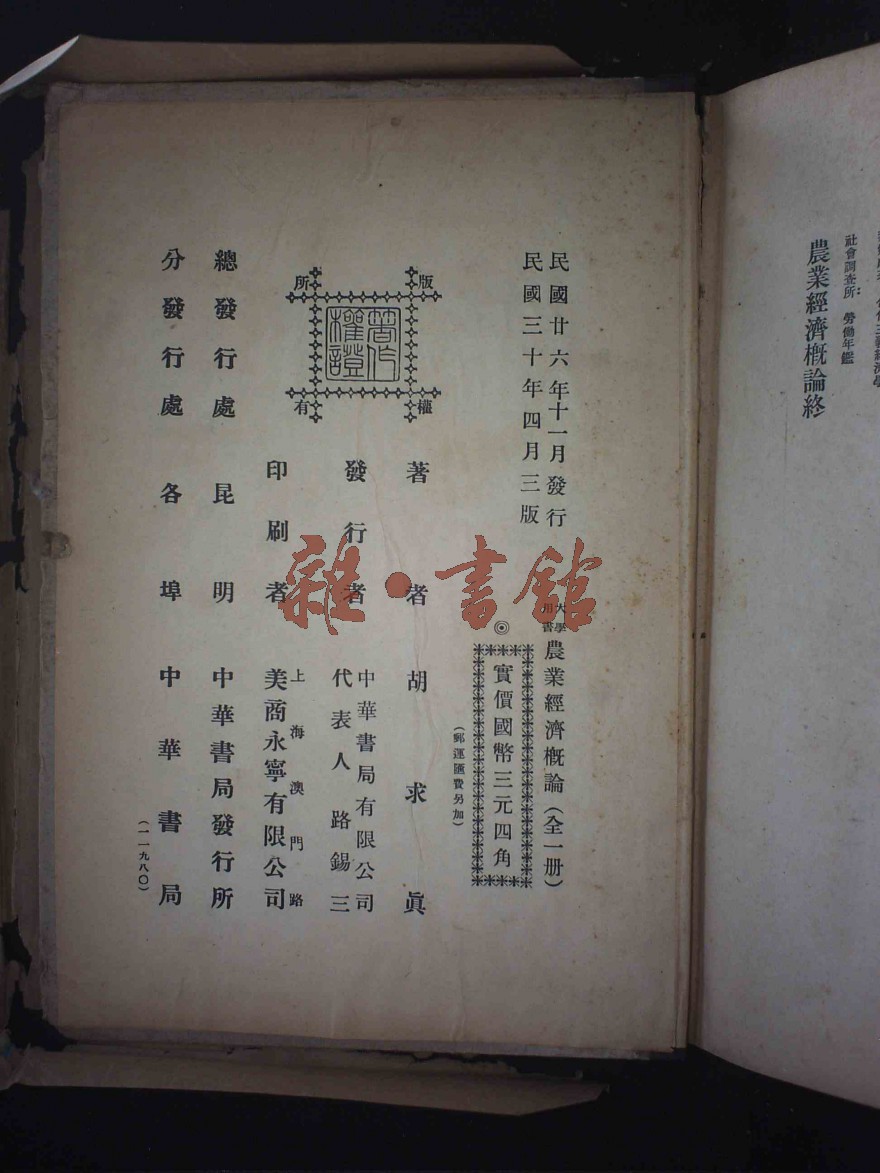 社會調查所：勞働年鑑
農業經濟概論終
民國廿六年十一月發行
民國三十年四月三版
大學用書 農業經濟概論（全一册）
◎實價國幣三元四角
（郵運匯費另加）
版權所有
著作權證
著者 胡求眞
發行者 中華書局有限公司
代表人 路錫三
印刷者 上海澳門路
美商永寧有限公司
總發行處 昆明 中華書局發行所
分發行處 各埠 中華書局
（一一九八〇）
雜·書館